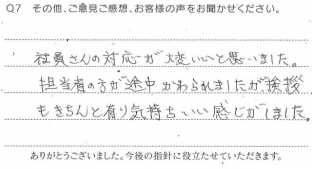 Q7 その他、ご意見ご感想、お客様の声をお聞かせください。
社員さんの対応が大変いいと思いました。
担当者の方が途中かわられましたが、挨拶
もきちんと有り気持ちいい感じがしました。
ありがとうございました。今後の指針に役立たせていただきます。